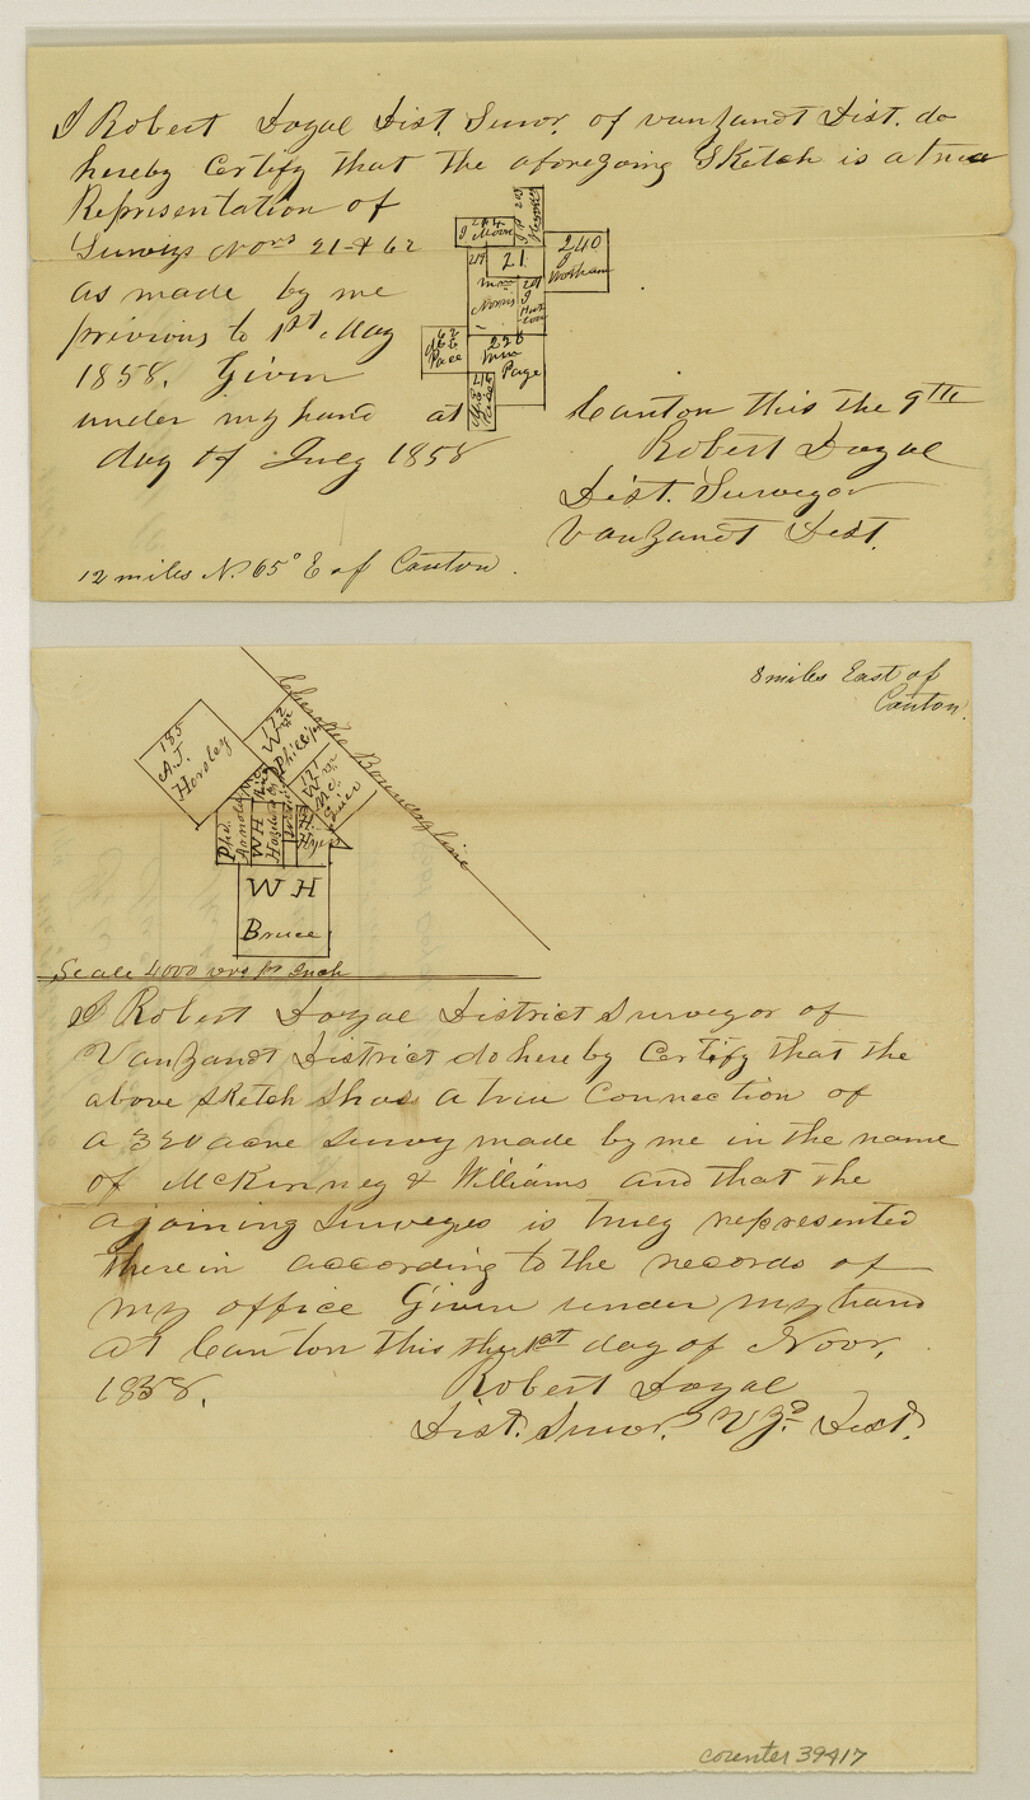 I Robert Dozal Dist. Survr. of vanzandt Dist. do
hereby Certify that the aforegoing Sketch is a true
Representation of
Surveys Nors 21 & 62
as made by me
privious to 1st May
1858. Given
under my hand at Canton this the 9th
day of July 1858
Robert Dozal
Dist. Surveyor
Vanzandt Dist.
12 miles N. 65° E of Canton.
204
J Moore
203
J P
240
J
Wortham
21.
Wm
Norris
201
J
62
Pace
228
Wm
Page
216
8 miles East of
Canton.
Cherokee Boundary line
185
A.J.
Horsley
172
Wm
Phillips
171
Wm
Phd.
Arnold
W H
W H
Bruce
Scale 4000 vrs pr Inch
I Robert Dozal District Surveyor of
Vanzandt District do hereby Certify that the
above Sketch Shows a true Connection of
a 320 acre Survey made by me in the name
of McKinney & Williams and that the
ajoining Surveyes is truly represented
therein according to the records of
my office Given under my hand
at Canton this the 1st day of Novr,
1858.
Robert Dozal
Dist. Survr. V Zd. Dist.
counter 39417